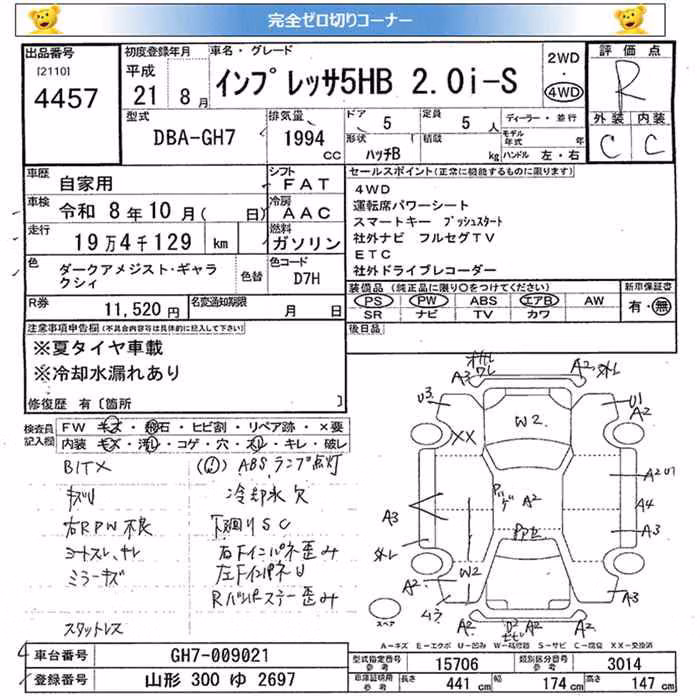 完全ゼロ切りコーナー
出品番号
[2110]
4457
初度登録年月
平成
21年 8月
車名・グレード
インプレッサ5HB 2.0i-S
2WD
・
4WD
評価点
R
外装 内装
C C
型式
DBA-GH7
排気量
1994
CC
ドア
5
定員
5人
形状
ハッチB
積載
kg
ディーラー・並行
モデル年式 年
ハンドル 左・右
車歴
自家用
シフト
FAT
車検
令和 8年10月( 日)
冷房
AAC
走行
19万4千129 km
燃料
ガソリン
色
ダークアメジスト・ギャラクシィ
色替
色コード
D7H
R券
11,520円
名変通知期限
月 日
セールスポイント(正常に機能するものに限ります)
4WD
運転席パワーシート
スマートキー プッシュスタート
社外ナビ フルセグTV
ETC
社外ドライブレコーダー
装備品(純正品に限り○をつけてください)
PS PW ABS エアB AW
SR ナビ TV カワ
新車保証書
有・無
後日品
注意事項申告欄(不具合内容等は具体的に記入して下さい)
※夏タイヤ車載
※冷却水漏れあり
修復歴 有〔箇所 〕
検査員記入欄
FW キズ・飛石・ヒビ割・リペア跡・×要
内装 キズ・汚レ・コゲ・穴・スレ・キレ・破レ
BITX
キズU
右RPW不良
シートスレ、キレ
ミラーキズ
スタットレス
ABSランプ点灯
冷却水欠
下廻りSC
右FインパネU歪み
左FインパネU
Rバンパステー歪み
A3 ワレ A2 外レ
U3 U1 A2
W2
XX
A2 U1
A2
A4
A3 A3
外レ
W2
A2
A3
A2 A2 A2
スペア
A=キズ E=エクボ U=凹み W=補修跡 S=サビ C=腐食 XX=交換済
車台番号
GH7-009021
登録番号
山形 300 ゆ 2697
型式指定番号
参考
15706
類別区分番号
参考
3014
車庫証明用
参考
長さ 441 cm
幅 174 cm
高さ 147 cm